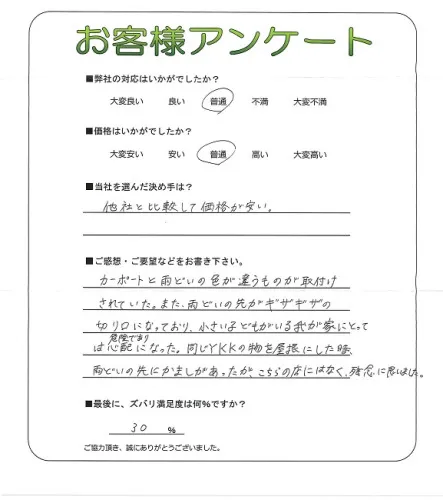 お客様アンケート
■弊社の対応はいかがでしたか？
大変良い 良い 普通 不満 大変不満
■価格はいかがでしたか？
大変安い 安い 普通 高い 大変高い
■当社を選んだ決め手は？
他社と比較して価格が安い。
■ご感想・ご要望などをお書き下さい。
カーポートと雨どいの色が違うものが取付け
されていた。また、雨どいの先がギザギザの
切り口になっており、小さい子どもがいる我が家にとって
危険であり
は心配になった。同じYKKの物を屋根にした時、
雨どいの先にかましがあったが、こちらの店にはなく、残念に思いました。
■最後に、ズバリ満足度は何%ですか？
30 %
ご協力頂き、誠にありがとうございました。